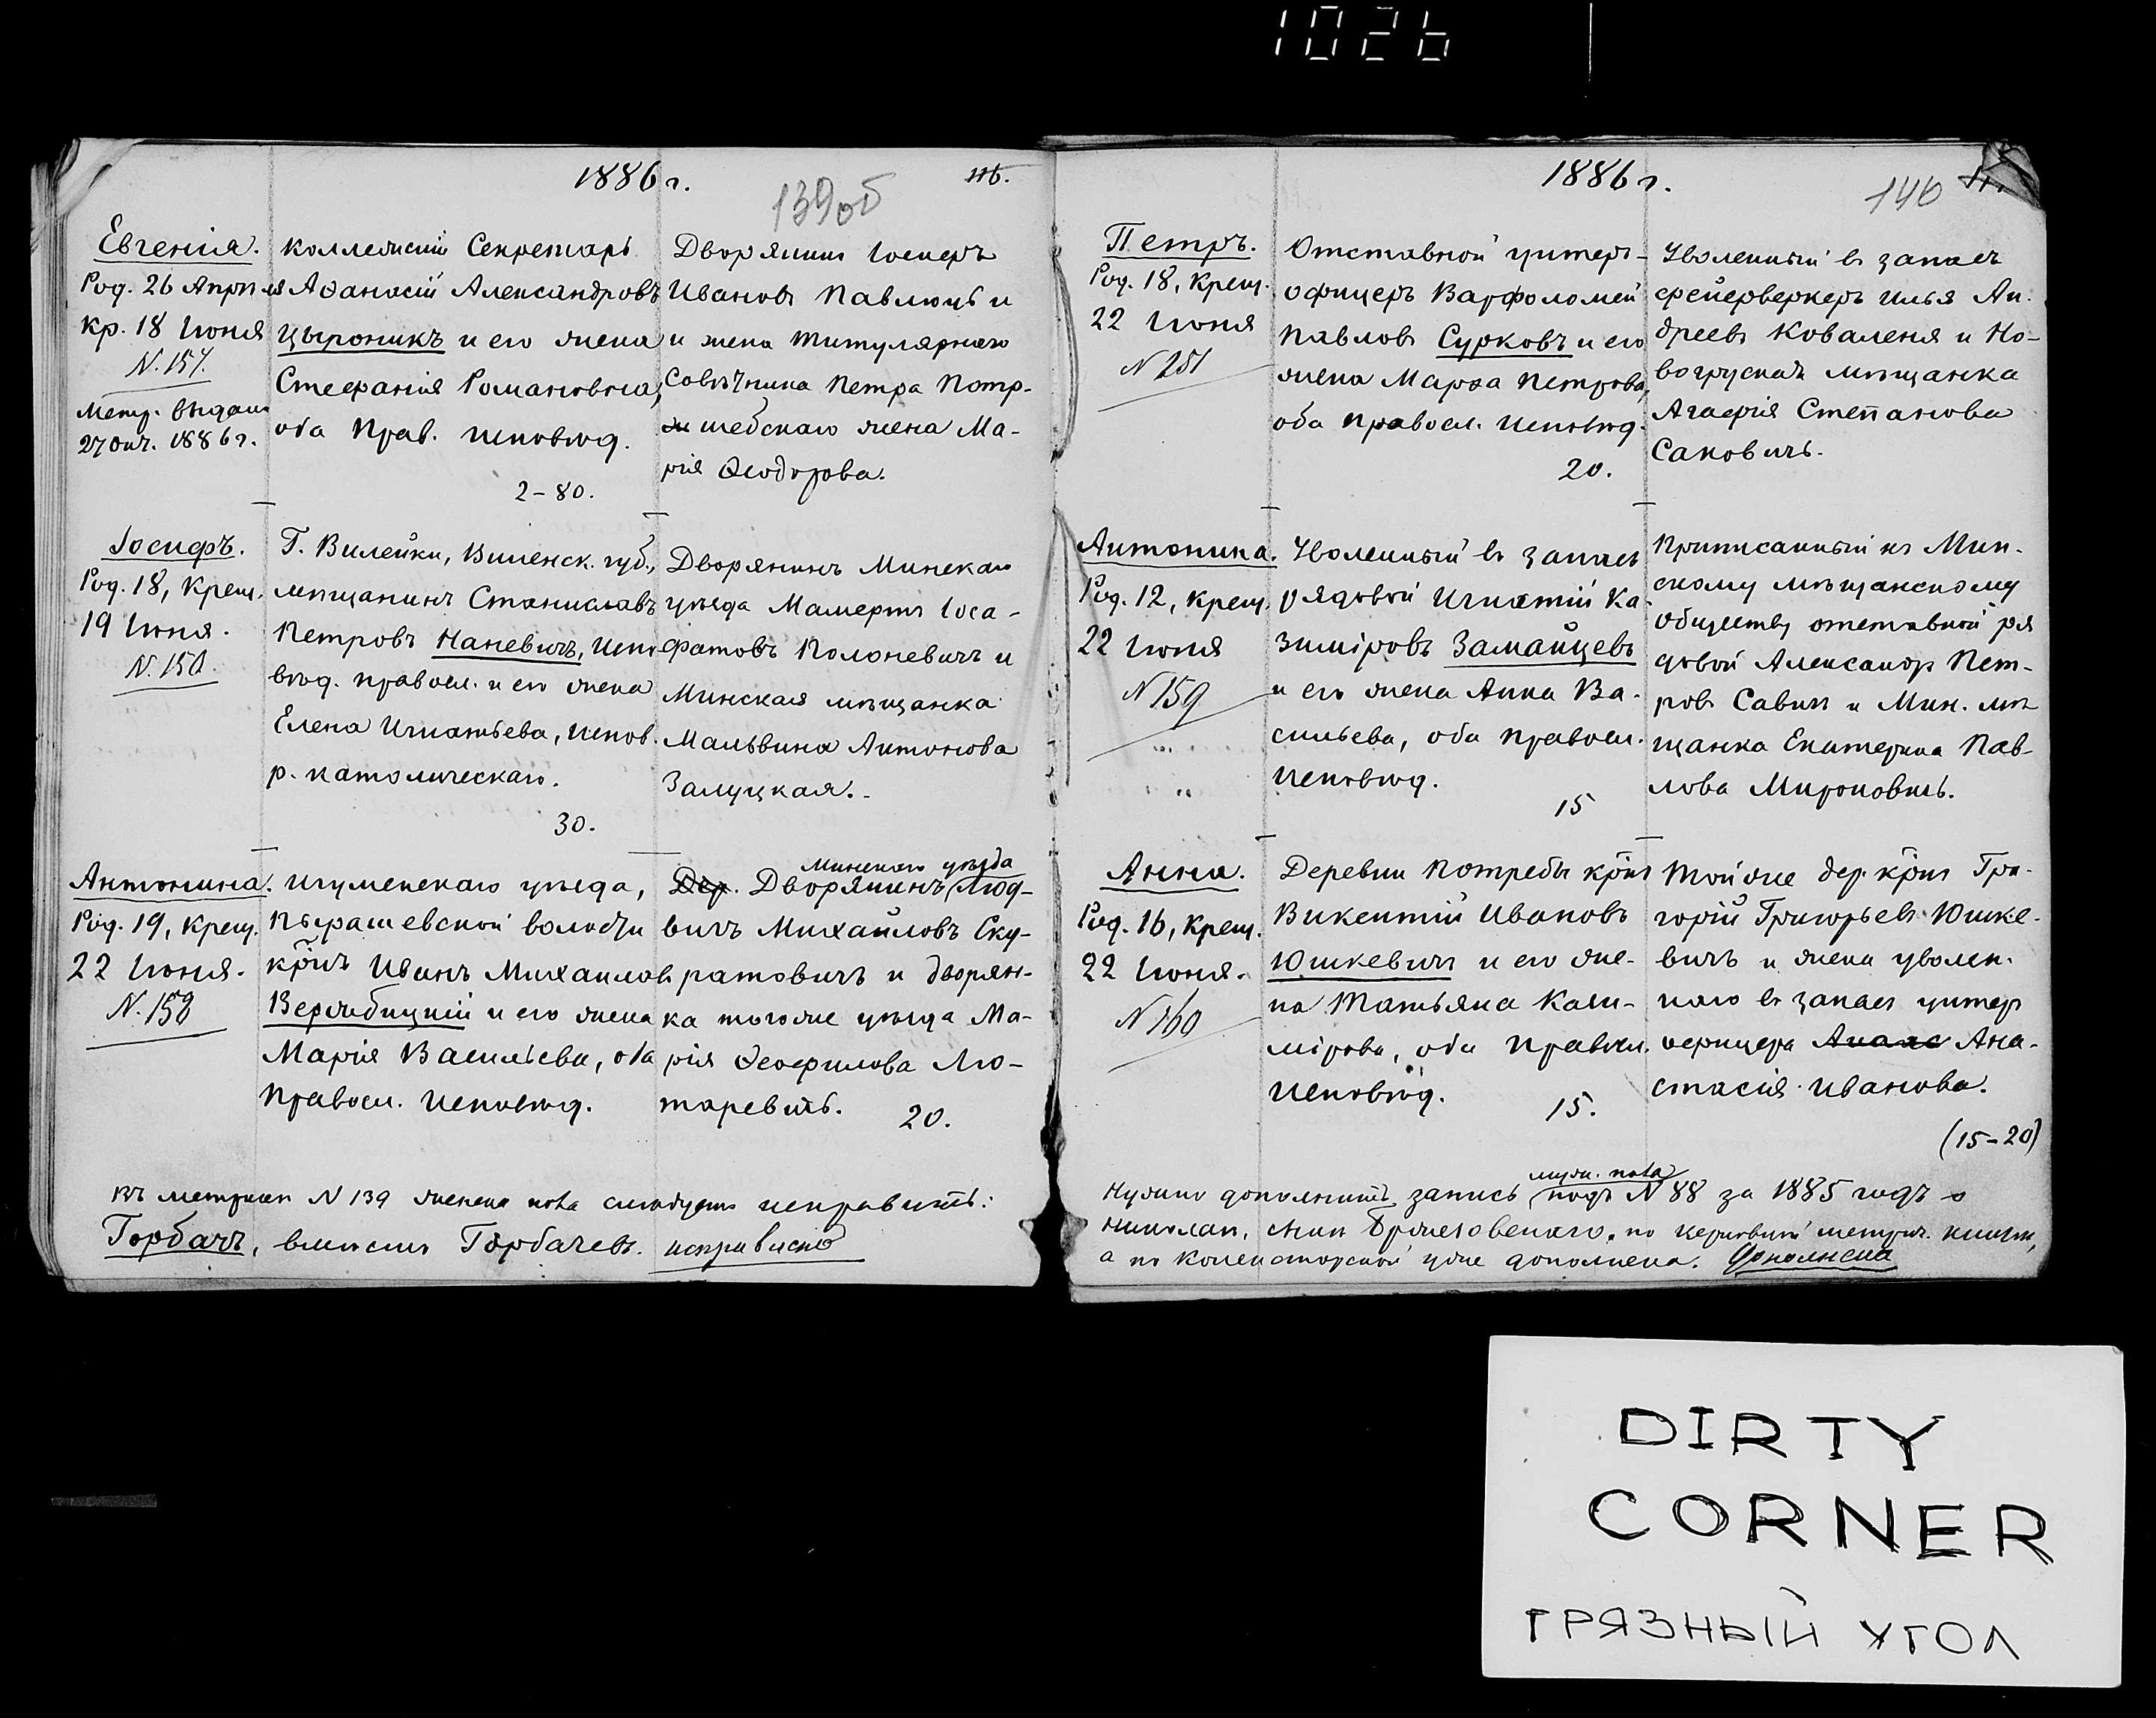 1026
1886 г.
116.
139об
Евгенія.
Род. 26 Апрѣля
Кр. 18 Іюня
N. 157.
Метр. выдана
27 Окт. 1886 г.
Коллежскій Секретарь
Аѳанасій Александровъ
Цыроникъ и его жена
Стефанія Романовна,
оба прав. исповѣд.
2-80.
Дворянинъ Іосифъ
Ивановъ Павлюць и
и жена Титулярнаго
Совѣтника Петра Потр-
шебскаго жена Ма-
рія Ѳеодорова.
Іосифъ.
Род. 18, Крещ.
19 Іюня.
N. 150.
Г. Вилейки, Виленск. губ.,
мѣщанинъ Станиславъ
Петровъ Наневичъ, испо
вѣд. правосл. и его жена
Елена Игнатьева, испов.
р. католическаго.
30.
Дворянинъ Минскаго
уѣзда Мамертъ Іоса-
фатовъ Полоневичъ и
Минская мѣщанка
Мальвина Антонова
Залуцкая.-
Антонина.
Род. 19, Крещ.
22 Іюня.
N. 158
Игуменскаго уѣзда,
Пырашевской волости
кр̃нъ Иванъ Михаиловъ
Вержбицкій и его жена
Марія Васильева, оба
правосл. исповѣд.
Минскаго уѣзда
Дер. Дворянинъ Люд-
вигъ Михайловъ Ску-
ратовичъ и дворян-
ка тогоже уѣзда Ма-
рія Ѳеофилова Лю-
таревичъ.
20.
въ метрикѣ N 139 женска пола слѣдуетъ исправить:
Горбачъ, вмѣсто Горбачевъ. исправлено
1886 г.
140
Петръ.
Род. 18, Крещ.
22 Іюня
N 251
Отставной унтеръ-
офицеръ Варфоломей
Павловъ Сурковъ и его
жена Марѳа Петрова,
оба правосл. исповѣд.
20.
Уволенный въ запасъ
фейерверкеръ Илья Ан-
дреевъ Коваленя и Но-
вогрудская мѣщанка
Агафія Степанова
Саковичъ.
Антонина.
Род. 12, Крещ.
22 Іюня
N 159
Уволенный въ запасъ
рядовой Игнатій Ка-
зиміровъ Замайцевъ
и его жена Анна Ва-
сильева, оба правосл.
исповѣд.
15
Приписанный къ Мин-
скому мѣщанскому
обществу отставной ря
довой Александръ Пет-
ровъ Савичъ и Мин. мѣ
щанка Екатерина Пав-
лова Мироновичъ.
Анна.
Род. 16, Крещ.
22 Іюня.
N 160
Деревни Потребы кр̃нъ
Викентій Ивановъ
Юшкевичъ и его же-
на Татьяна Кази-
мірова, оба правосл.
исповѣд.
15.
Той же дер. кр̃нъ Гри-
горій Григорьевъ Юшке-
вичъ и жена уволен-
наго въ запасъ унтер
офицера Анас Ана-
стасія Иванова.
(15-20)
муж. пола
Нужно дополнить запись подъ N 88 за 1885 годъ о
Николаѣ, сынѣ по церковной метрич. книгѣ,
а по консисторской уже дополнена. Дополнена
DIRTY
CORNER
ГРЯЗНЫЙ УГОЛ